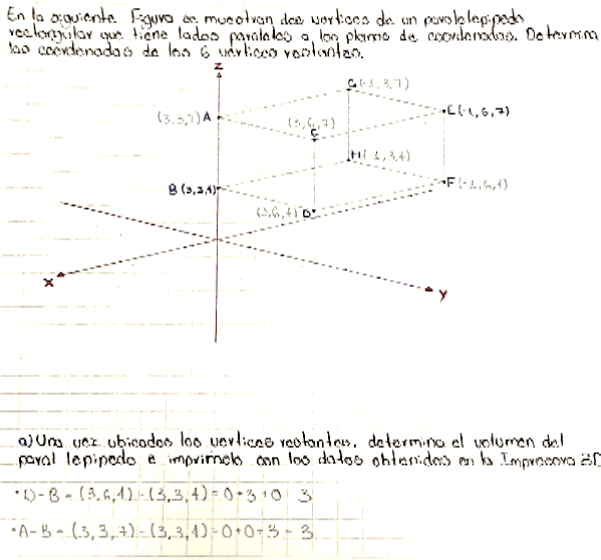 En la siguiente Figura se muestran dos vertices de un paralelepipedo
rectangular que tiene lados paralelos a los planos de coordenadas. Determina
las coordenadas de los 6 vértices restantes.
z
G(-1, 3, 7)
(3, 3, 7) A
(3, 6, 7)
C
E(-1, 6, 7)
H(-1, 3, 4)
B (3, 3, 4)
F(-1, 6, 4)
(3, 6, 4) D
x
y
a) Una vez ubicados los vertices restantes, determina el volumen del
paralelepipedo e imprimelo con los datos obtenidos en la Impresora 3D
• D-B = (3, 6, 4) - (3, 3, 4) = 0+3+0 3
• A-B = (3, 3, 7) - (3, 3, 4) = 0+0+3 = 3